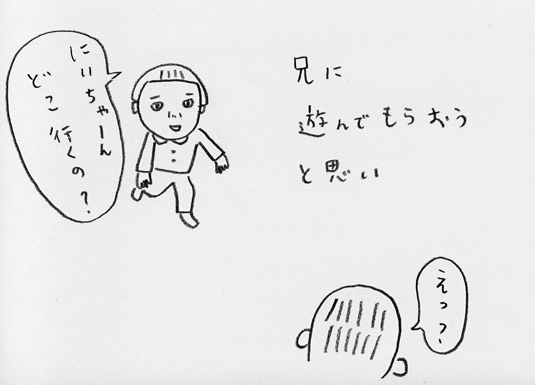 にいちゃーん
どこ行くの？
兄に
遊んでもらおう
と思い
えっ？